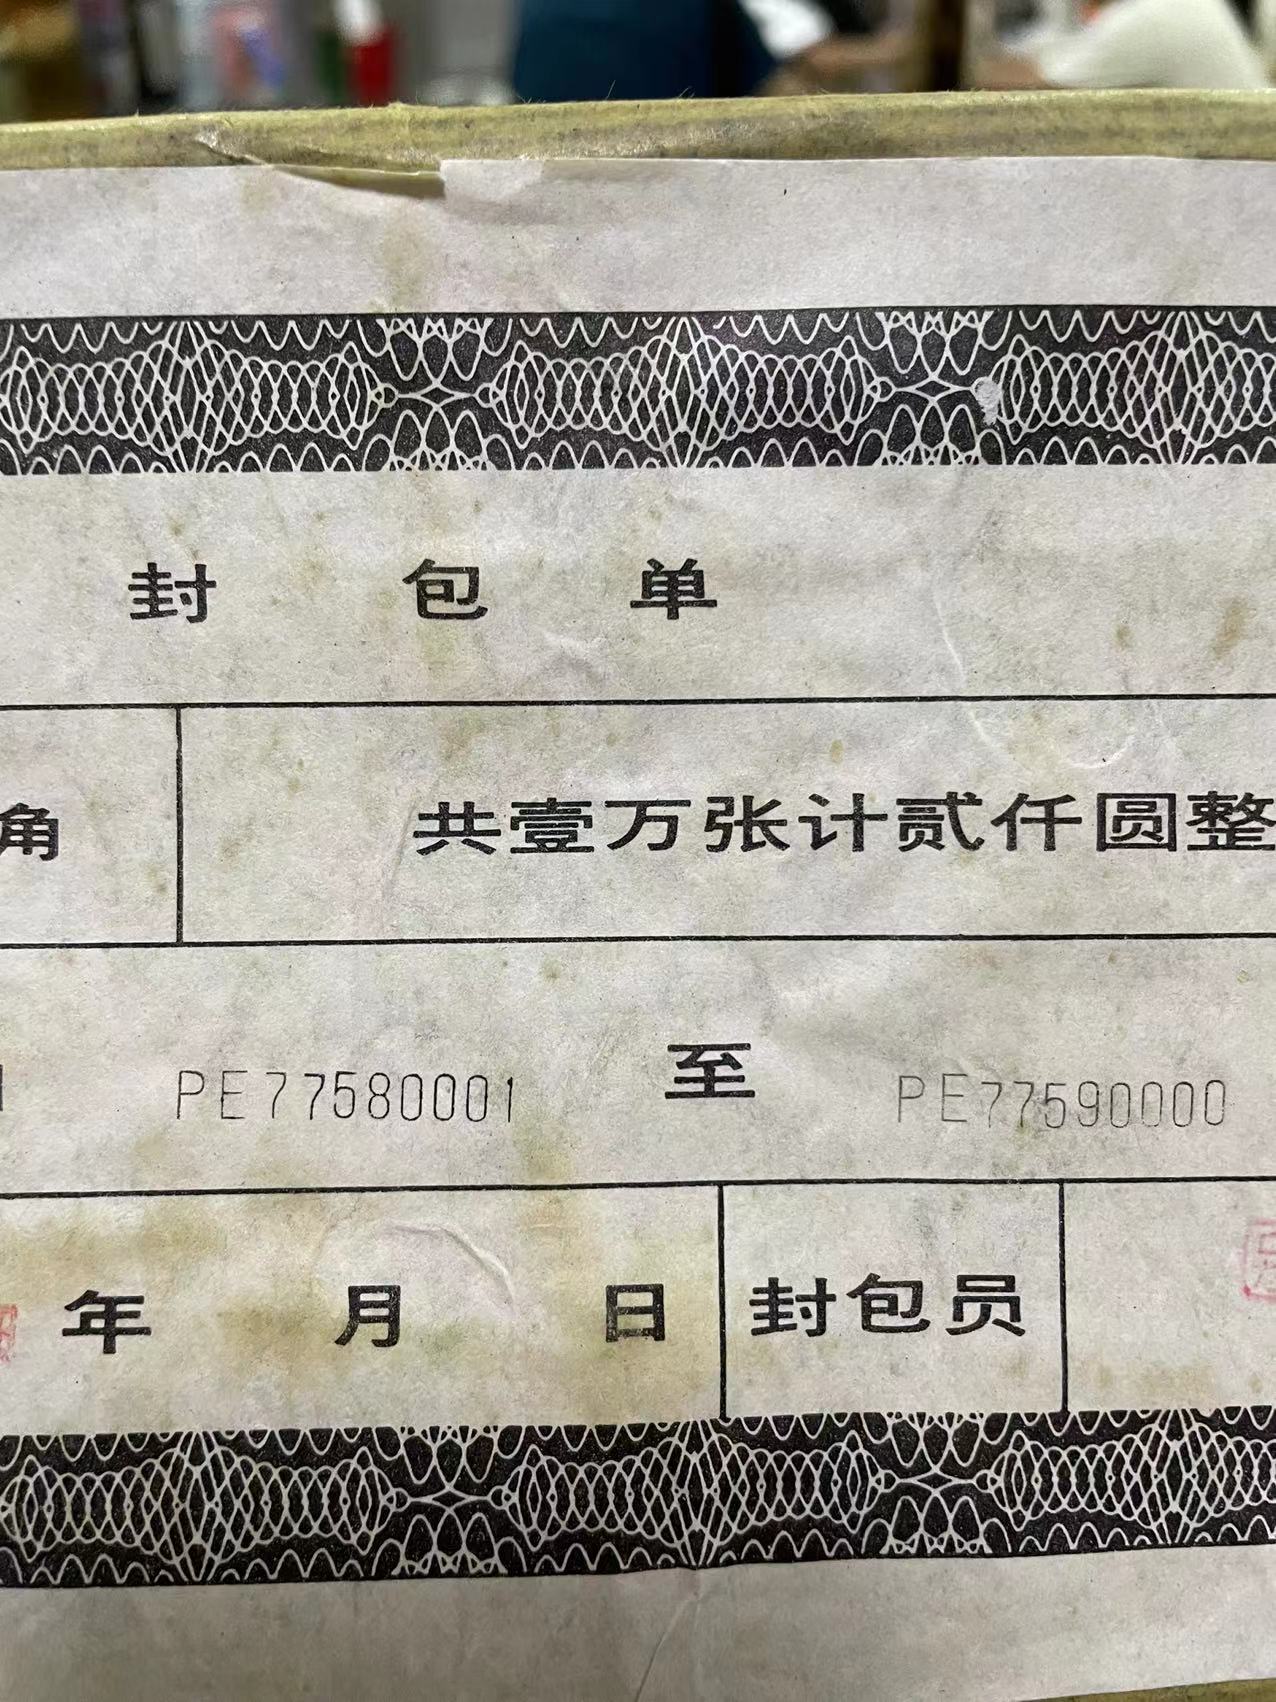 封包单
角 共壹万张计贰仟圆整
PE77580001 至 PE77590000
年 月 日 封包员